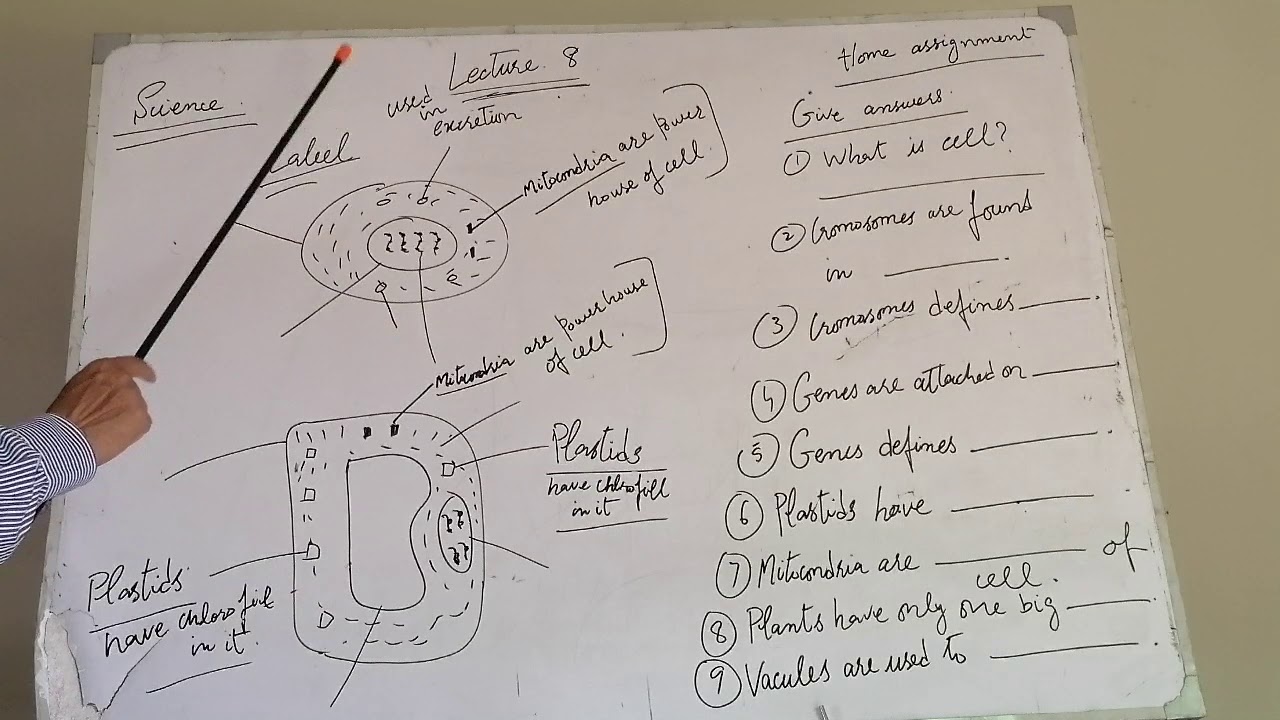 Science
Lecture 8
Label
used
in
excretion
Mitocondria are power
house of cell.
Mitocondria are powerhouse
of cell.
Plastids
have chlorofill
in it
Plastids
have chlorofill
in it.
Home assignment
Give answers.
1 What is cell?
2 Cromosomes are found
in
3 Cromosomes defines
4 Genes are attached on
5 Genes defines
6 Plastids have
7 Mitocondria are of
cell.
8 Plants have only one big
9 Vacules are used to